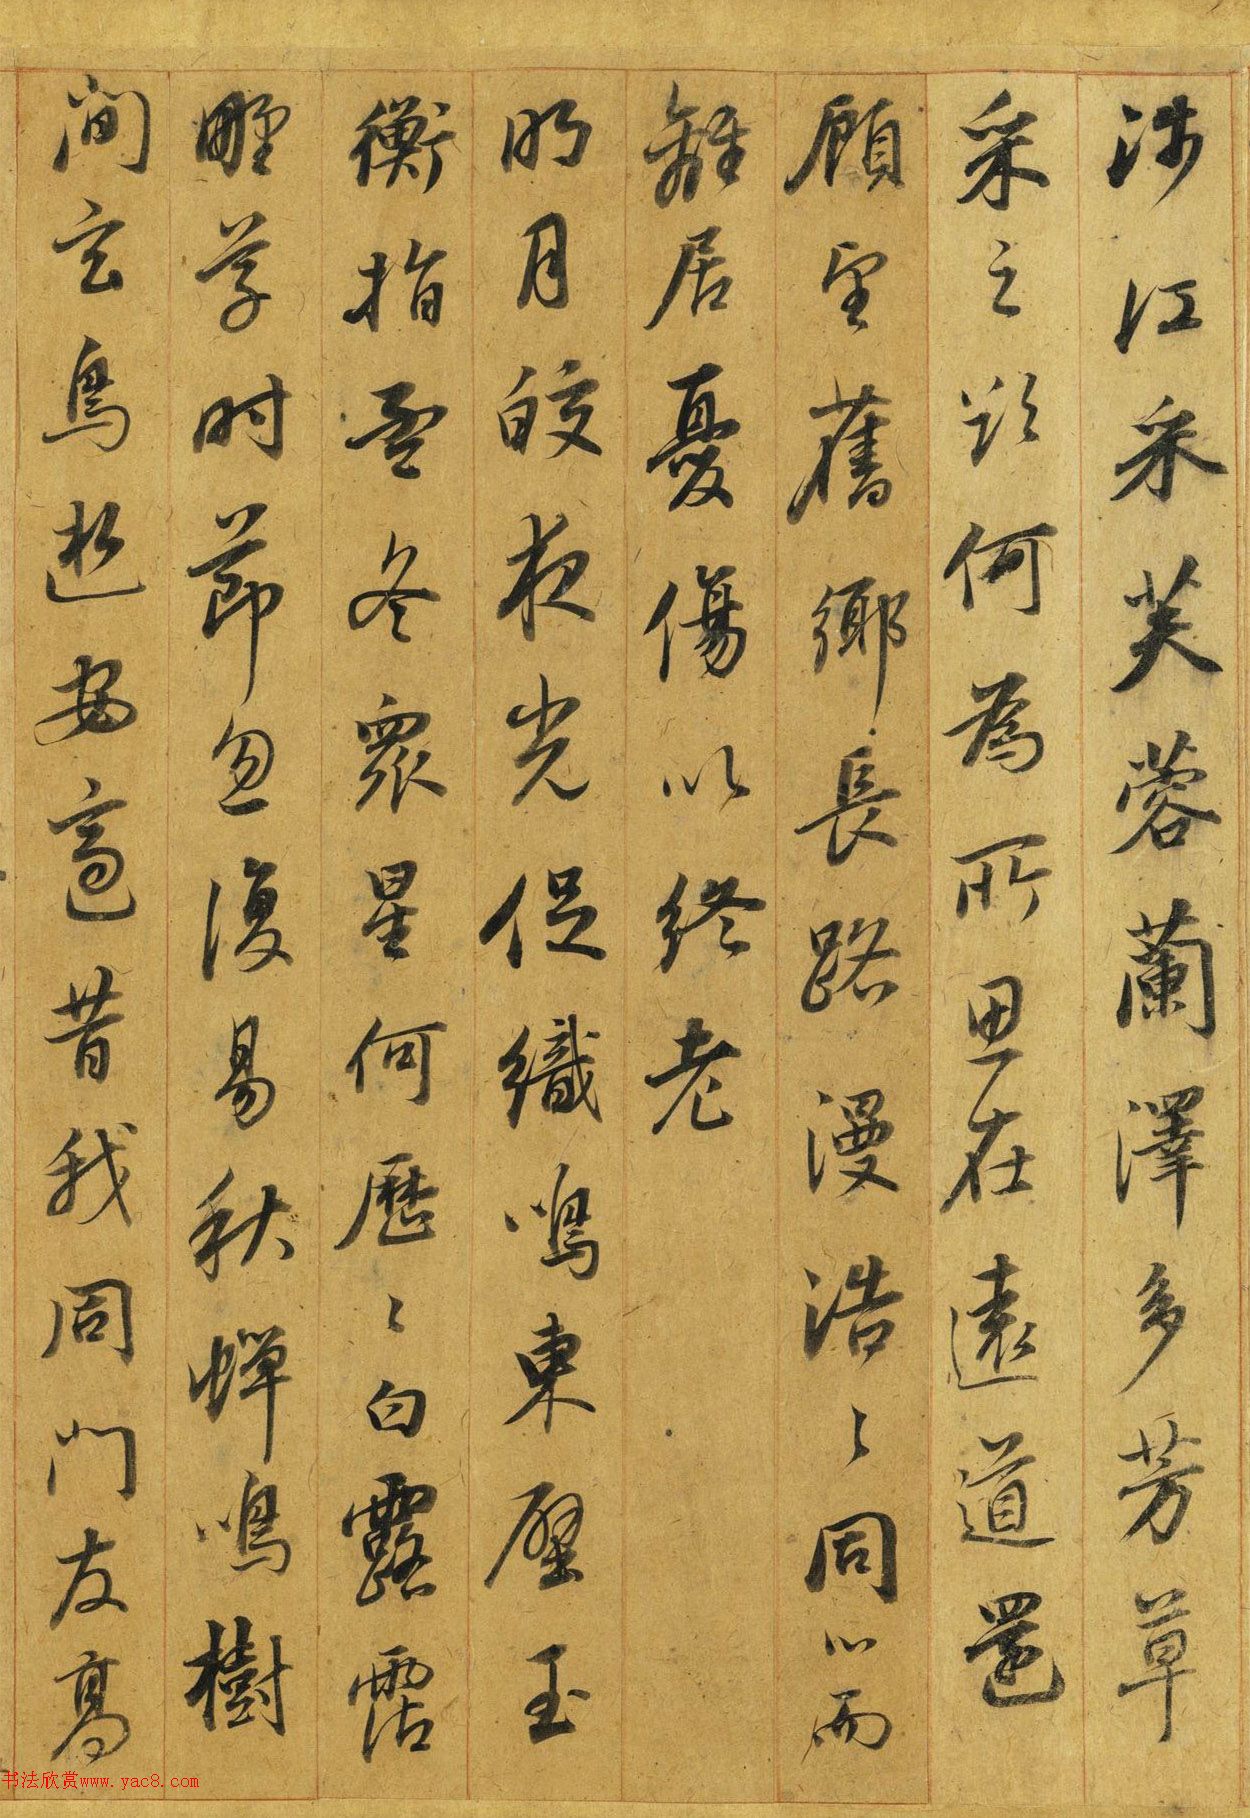 涉江采芙蓉蘭澤多芳草
采之欲何為所思在遠道還
顧望舊鄉長路漫浩〻同心而
離居憂傷以終老
明月皎夜光促織鳴東壁玉
衡指孟冬眾星何歷〻白露霑
野草時節忽復易秋蟬鳴樹
間玄鳥逝安適昔我同門友高
书法欣赏www.yac8.com